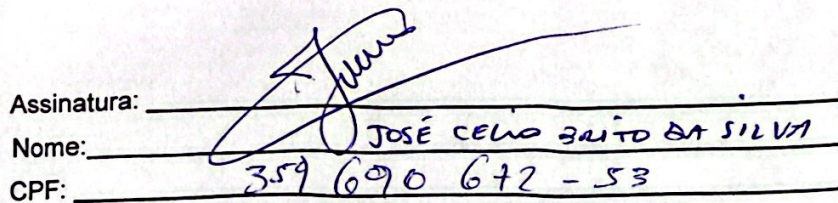 Assinatura:
Nome: JOSÉ CELIO BRITO DA SILVA
CPF: 359 690 672 - 53